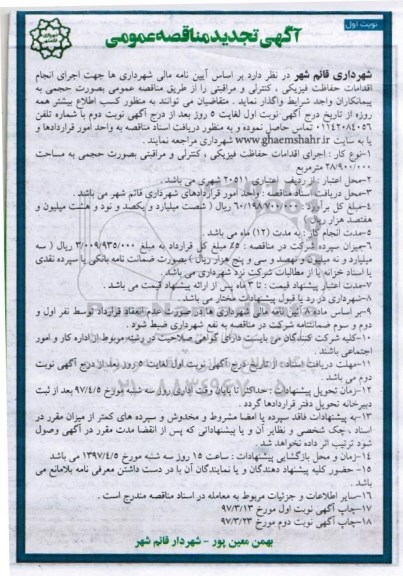 نوبت اول
آگهی تجدید مناقصه عمومی
شهرداری قائم شهر در نظر دارد بر اساس آیین نامه مالی شهرداری ها جهت اجرای انجام
اقدامات حفاظت فیزیکی ، کنترلی و مراقبتی را از طریق مناقصه عمومی بصورت حجمی به
پیمانکاران واجد شرایط واگذار نماید . متقاضیان می توانند به منظور کسب اطلاع بیشتر همه
روزه از تاریخ درج آگهی نوبت اول لغایت ۵ روز بعد از درج آگهی نوبت دوم با شماره تلفن
۰۱۱۴۲۰۸۴۰۵۶ تماس حاصل نموده و به منظور دریافت اسناد مناقصه به واحد امور قراردادها و
یا به سایت www.ghaemshahr.ir شهرداری مراجعه نمایند .
۱-نوع کار : اجرای اقدامات حفاظت فیزیکی ، کنترلی و مراقبتی بصورت حجمی به مساحت
۲۸/۹۰۰/۰۰۰ مترمربع
۲-محل اعتبار : از ردیف اعتباری ۲۰۵۱۱ شهری می باشد .
۳-محل دریافت اسناد مناقصه : واحد امور قراردادهای شهرداری قائم شهر می باشد .
۴-مبلغ کل برآورد : ۶۰/۱۹۸/۷۰۰/۰۰۰ ریال ( شصت میلیارد و یکصد و نود و هشت میلیون و
هفتصد هزار ریال )
۵-مدت انجام کار : به مدت (۱۲) ماه می باشد .
۶-میزان سپرده شرکت در مناقصه : ۵٪ مبلغ کل قرارداد به مبلغ ۳/۰۰۹/۹۳۵/۰۰۰ ریال ( سه
میلیارد و نه میلیون و نهصد و سی و پنج هزار ریال ) بصورت ضمانت نامه بانکی یا سپرده نقدی
یا اسناد خزانه یا از مطالبات شرکت نزد شهرداری می باشد .
۷-مدت اعتبار پیشنهاد قیمت : تا ۳ ماه پس از ارائه پیشنهاد قیمت می باشد .
۸-شهرداری در رد یا قبول پیشنهادات مختار می باشد .
۹-بر اساس ماده ۸ آیین نامه مالی شهرداری ها در صورت عدم انعقاد قرارداد توسط نفر اول و
دوم و سوم ضمانتنامه شرکت در مناقصه به نفع شهرداری ضبط شود .
۱۰-کلیه شرکت کنندگان می بایست دارای گواهی صلاحیت در رشته مربوطه از اداره کار و امور
اجتماعی باشند .
۱۱-مهلت دریافت اسناد : از تاریخ درج آگهی نوبت اول لغایت ۵ روز بعد از درج آگهی نوبت
دوم می باشد .
۱۲-زمان تحویل پیشنهادات : حداکثر تا پایان وقت اداری روز سه شنبه مورخ ۹۷/۴/۵ بعد از ثبت
دبیرخانه تحویل دفتر قراردادها گردد .
۱۳-به پیشنهادات فاقد سپرده یا امضا مشروط و مخدوش و سپرده های کمتر از میزان مقرر در
اسناد ، چک شخصی و نظایر آن و یا پیشنهاداتی که پس از انقضا مدت مقرر در آگهی وصول
شود ترتیب اثر داده نخواهد شد .
۱۴-زمان و محل بازگشایی پیشنهادات : ساعت ۱۵ روز سه شنبه مورخ ۱۳۹۷/۴/۵ می باشد
۱۵- حضور کلیه پیشنهاد دهندگان و یا نمایندگان آن با در دست داشتن معرفی نامه بلامانع می
باشد .
۱۶-سایر اطلاعات و جزئیات مربوط به معامله در اسناد مناقصه مندرج است .
۱۷-چاپ آگهی نوبت اول مورخ ۹۷/۳/۱۳
۱۸-چاپ آگهی نوبت دوم مورخ ۹۷/۳/۲۳
بهمن معین پور - شهردار قائم شهر